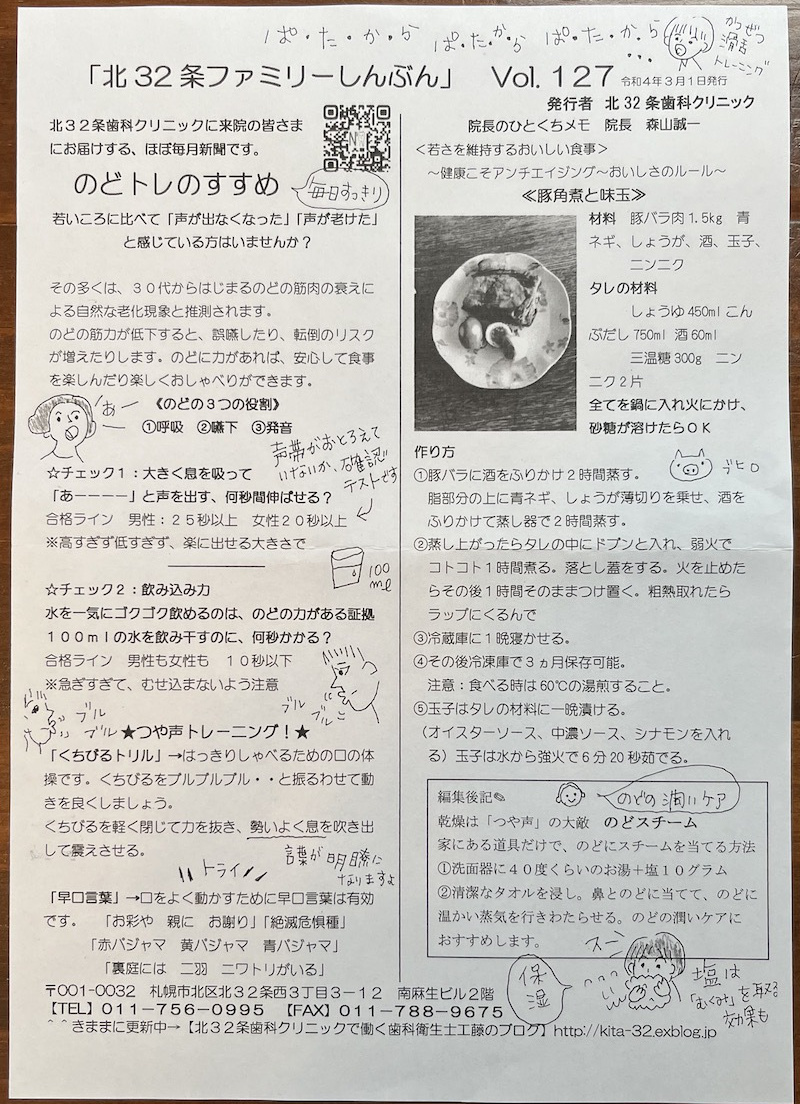 ぱ・た・か・ら ぱ・た・か・ら ぱ・た・か・ら
・・・
かつぜつ
滑舌
トレーニング
「北32条ファミリーしんぶん」 Vol.127 令和4年3月1日発行
発行者 北32条歯科クリニック
北32条歯科クリニックに来院の皆さま
にお届けする、ほぼ毎月新聞です。
のどトレのすすめ
毎日すっきり
若いころに比べて「声が出なくなった」「声が老けた」
と感じている方はいませんか?
その多くは、30代からはじまるのどの筋肉の衰えに
よる自然な老化現象と推測されます。
のどの筋力が低下すると、誤嚥したり、転倒のリスク
が増えたりします。のどに力があれば、安心して食事
を楽しんだり楽しくおしゃべりができます。
《のどの3つの役割》
①呼吸 ②嚥下 ③発音
あ
声帯がおとろえて
いないか、確認
テストです
☆チェック1:大きく息を吸って
「あーーーー」と声を出す、何秒間伸ばせる?
合格ライン 男性:25秒以上 女性20秒以上
※高すぎず低すぎず、楽に出せる大きさで
100ml
☆チェック2:飲み込み力
水を一気にゴクゴク飲めるのは、のどの力がある証拠
100mlの水を飲み干すのに、何秒かかる?
合格ライン 男性も女性も 10秒以下
※急ぎすぎて、むせ込まないよう注意
ブル
ブル
ブル
ブル
★つや声トレーニング!★
「くちびるトリル」→はっきりしゃべるための口の体
操です。くちびるをブルブルブル・・と振るわせて動
きを良くしましょう。
くちびるを軽く閉じて力を抜き、勢いよく息を吹き出
して震えさせる。
トライ
言葉が明瞭に
なりますよ
「早口言葉」→口をよく動かすために早口言葉は有効
です。 「お彩や 親に お謝り」「絶滅危惧種」
「赤パジャマ 黄パジャマ 青パジャマ」
「裏庭には 二羽 ニワトリがいる」
院長のひとくちメモ 院長 森山誠一
<若さを維持するおいしい食事>
~健康こそアンチエイジング~おいしさのルール~
≪豚角煮と味玉≫
材料 豚バラ肉1.5kg 青
ネギ、しょうが、酒、玉子、
ニンニク
タレの材料
しょうゆ450ml こん
ぶだし750ml 酒60ml
三温糖300g ニン
ニク2片
全てを鍋に入れ火にかけ、
砂糖が溶けたらOK
作り方
ブヒロ
①豚バラに酒をふりかけ2時間蒸す。
脂部分の上に青ネギ、しょうが薄切りを乗せ、酒を
ふりかけて蒸し器で2時間蒸す。
②蒸し上がったらタレの中にドプンと入れ、弱火で
コトコト1時間煮る。落とし蓋をする。火を止めた
らその後1時間そのままつけ置く。粗熱取れたら
ラップにくるんで
③冷蔵庫に1晩寝かせる。
④その後冷凍庫で3ヵ月保存可能。
注意:食べる時は60℃の湯煎すること。
⑤玉子はタレの材料に一晩漬ける。
(オイスターソース、中濃ソース、シナモンを入れ
る)玉子は水から強火で6分20秒茹でる。
編集後記✎
のどの潤いケア
乾燥は「つや声」の大敵 のどスチーム
家にある道具だけで、のどにスチームを当てる方法
①洗面器に40度くらいのお湯+塩10グラム
②清潔なタオルを浸し。鼻とのどに当てて、のどに
温かい蒸気を行きわたらせる。のどの潤いケアに
おすすめします。
スー
保湿
塩は
「むくみ」を取る
効果も
〒001-0032 札幌市北区北32条西3丁目3-12 南麻生ビル2階
【TEL】011-756-0995 【FAX】011-788-9675
^^きままに更新中→【北32条歯科クリニックで働く歯科衛生士工藤のブログ】http://kita-32.exblog.jp